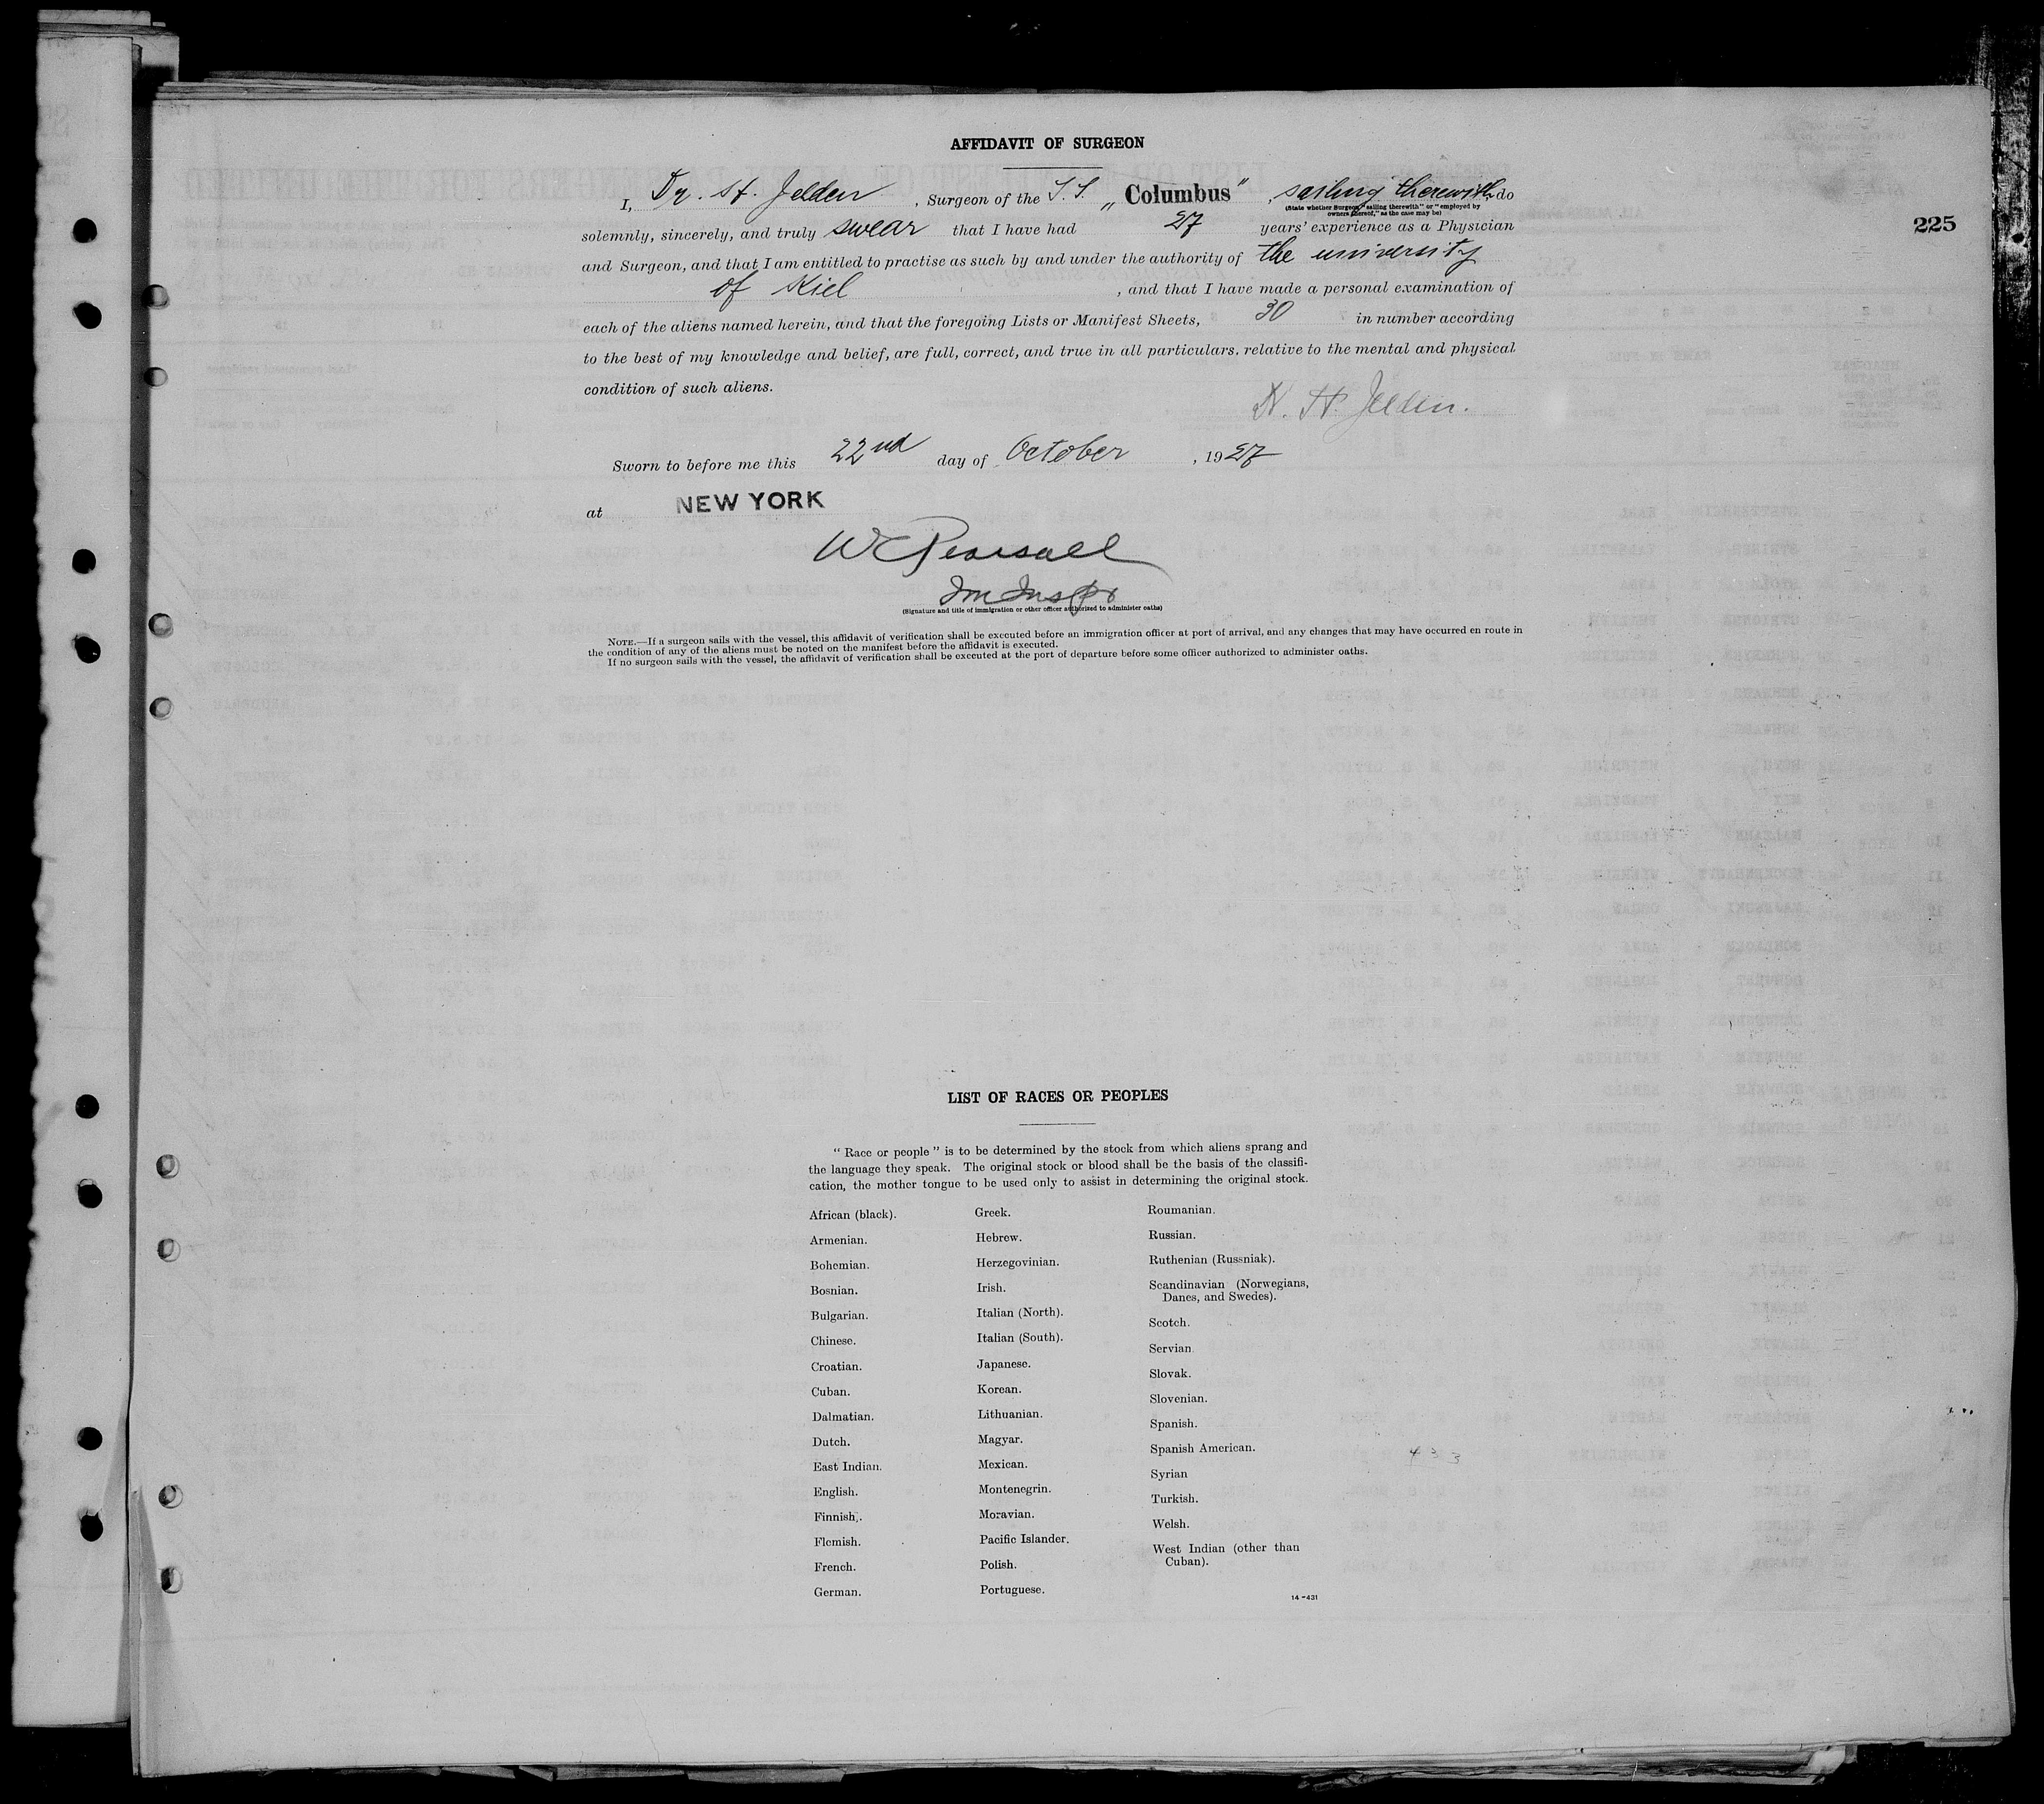 AFFIDAVIT OF SURGEON
I, Dr. H. Jelden, Surgeon of the S.S. „Columbus", sailing therewith, do
(State whether Surgeon "sailing therewith" or "employed by
owners thereof," as the case may be)
225
solemnly, sincerely, and truly swear that I have had 27 years' experience as a Physician
and Surgeon, and that I am entitled to practise as such by and under the authority of the university
of Kiel, and that I have made a personal examination of
each of the aliens named herein, and that the foregoing Lists or Manifest Sheets, 30 in number according
to the best of my knowledge and belief, are full, correct, and true in all particulars, relative to the mental and physical
condition of such aliens.
Dr. H. Jelden.
Sworn to before me this 22nd day of October, 1927
at NEW YORK
W C Pearsall
Im Inspr
(Signature and title of immigration or other officer authorized to administer oaths)
NOTE.—If a surgeon sails with the vessel, this affidavit of verification shall be executed before an immigration officer at port of arrival, and any changes that may have occurred en route in
the condition of any of the aliens must be noted on the manifest before the affidavit is executed.
If no surgeon sails with the vessel, the affidavit of verification shall be executed at the port of departure before some officer authorized to administer oaths.
LIST OF RACES OR PEOPLES
" Race or people " is to be determined by the stock from which aliens sprang and
the language they speak. The original stock or blood shall be the basis of the classifi-
cation, the mother tongue to be used only to assist in determining the original stock.
African (black).
Armenian.
Bohemian.
Bosnian.
Bulgarian.
Chinese.
Croatian.
Cuban.
Dalmatian.
Dutch.
East Indian.
English.
Finnish.
Flemish.
French.
German.
Greek.
Hebrew.
Herzegovinian.
Irish.
Italian (North).
Italian (South).
Japanese.
Korean.
Lithuanian.
Magyar.
Mexican.
Montenegrin.
Moravian.
Pacific Islander.
Polish.
Portuguese.
Roumanian.
Russian.
Ruthenian (Russniak).
Scandinavian (Norwegians,
Danes, and Swedes).
Scotch.
Servian
Slovak.
Slovenian.
Spanish.
Spanish American.
Syrian
Turkish.
Welsh.
West Indian (other than
Cuban).
433
14-431